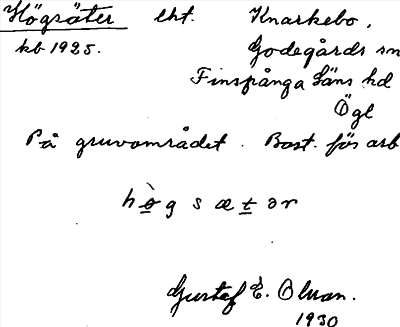 Högsäter lht. Knarkebo,
kb 1925. Godegårds sn
Finspånga läns hd
Ögl
På gruvområdet. Bost. för arb
hògsætər
Gustaf E. Olsson.
1930